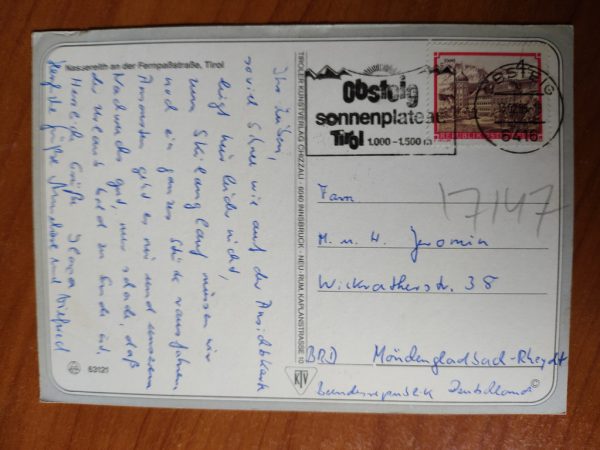 Nassereith an der Fernpaßstraße, Tirol
Ihr Lieben,
soviel Schnee wie auf der Ansichtskarte
liegt hier leider nicht,
zum Skilanglauf müssen wir
noch ein ganzes Stück rausfahren.
Ansonsten geht es mir und unserem
Nachwuchs gut, nur schade, daß
der Urlaub bald zu Ende ist.
Herzliche Grüße
und Winfried
63121
TIROLER KUNSTVERLAG CHIZZALI · 6040 INNSBRUCK - NEU-RUM, KAPLANSTRASSE 10
KTV
Obsteig
sonnenplateau
Tirol 1.000-1.500 m
OBSTEIG
6416
REPUBLIK
Fam.
M. u. W. Jeromin
Wickratherstr. 38
BRD Möndengladbach-Rheydt
Bundesrepublik Deutschland
©
17147